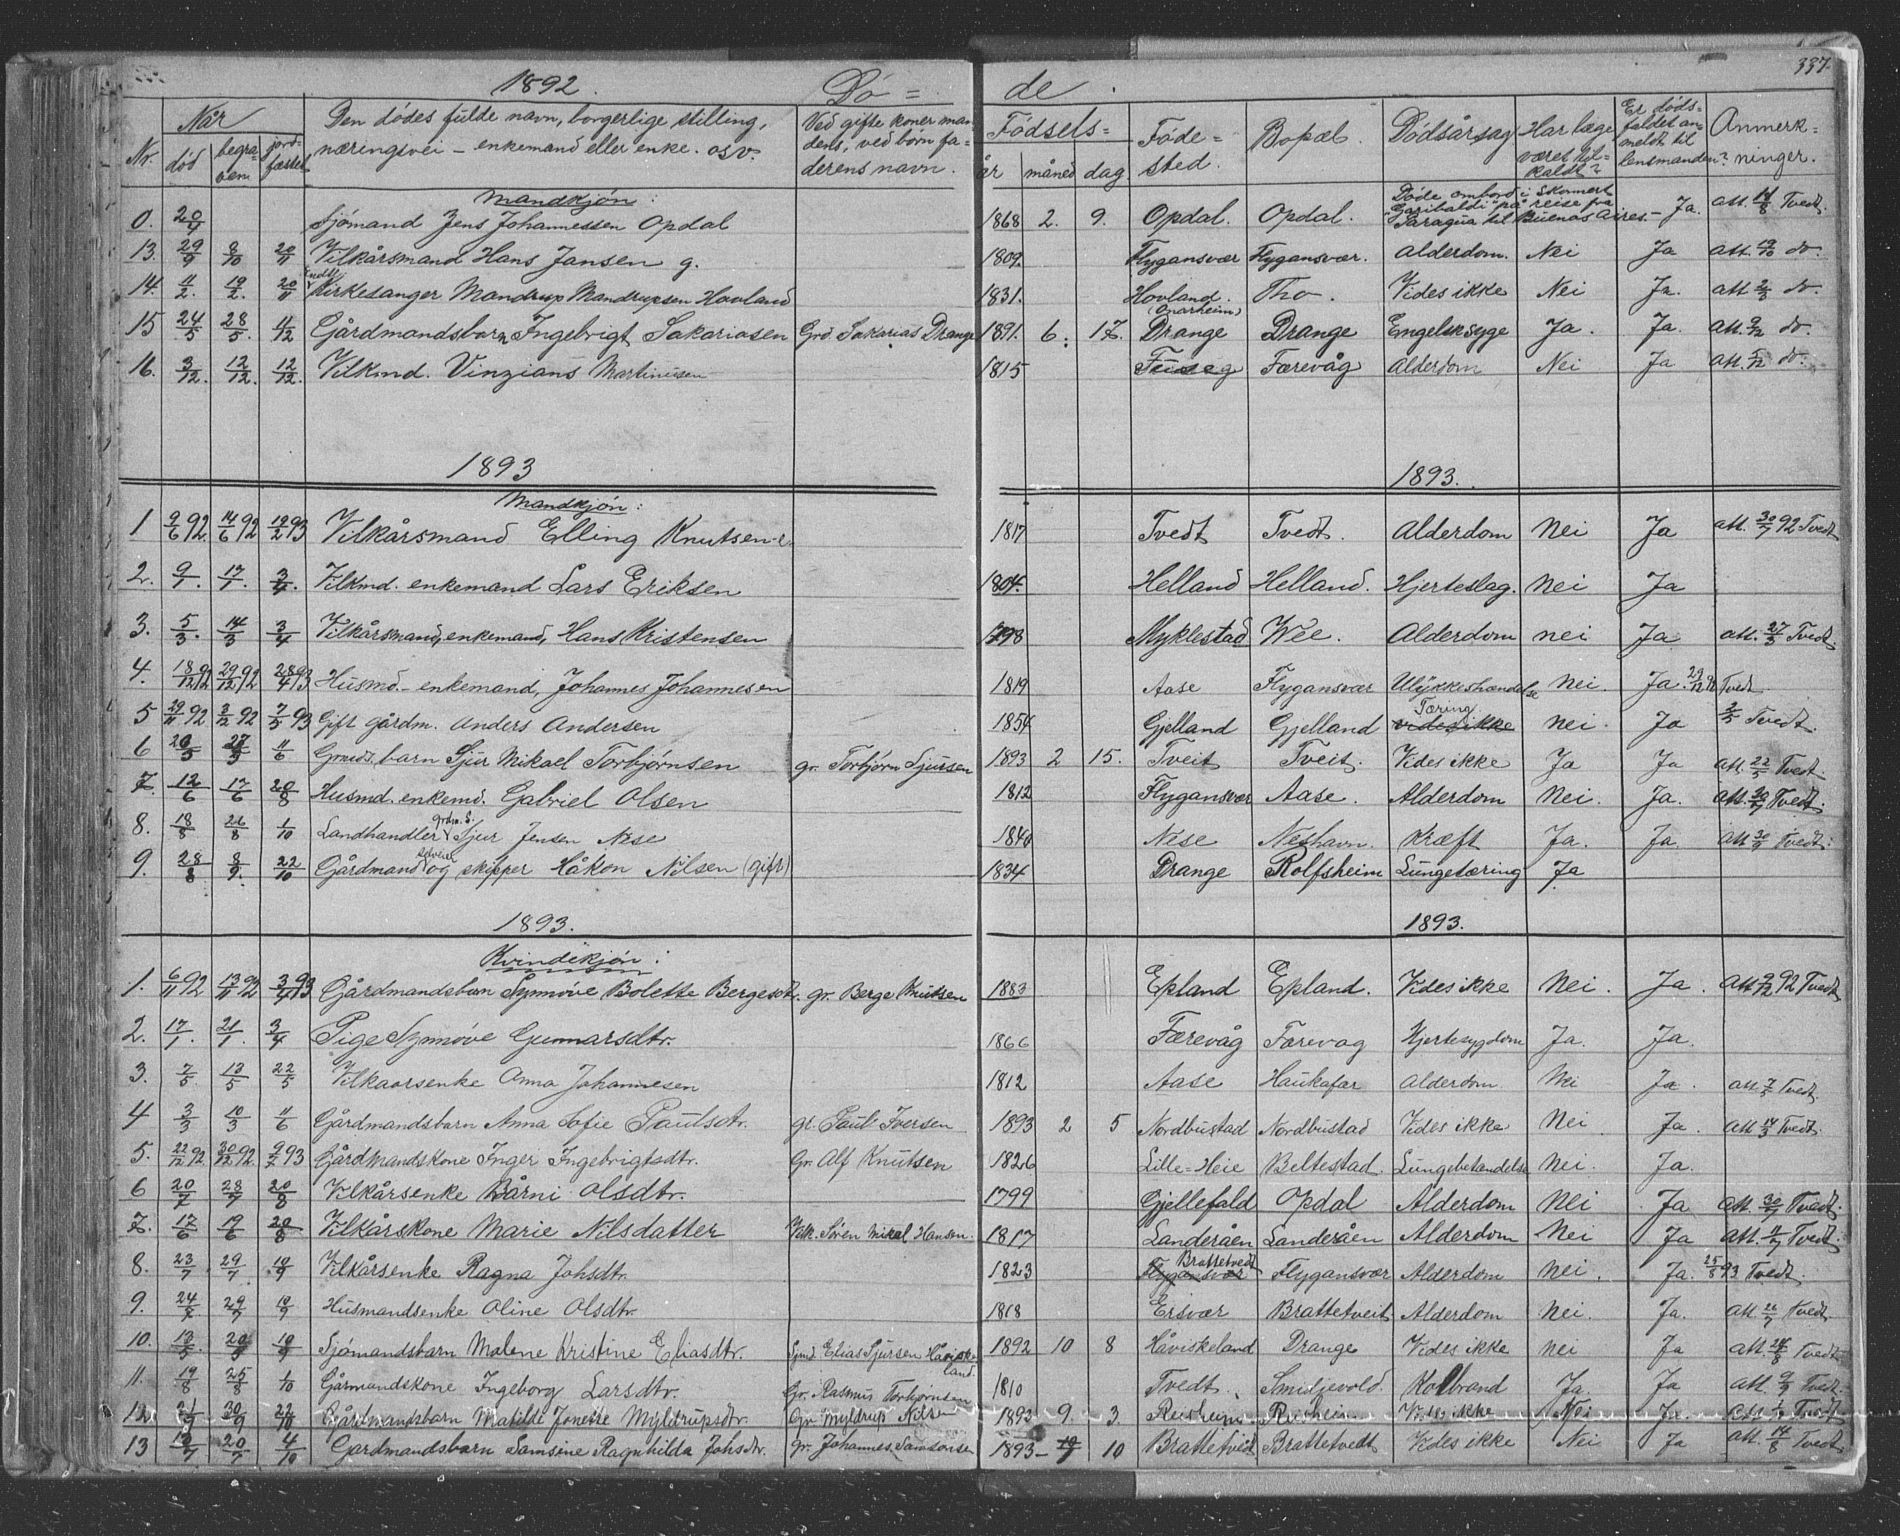 1892. Dø = de. 337.
Nr. Når død begraven jordfæstet Den dødes fulde navn, borgerlige stilling, næringsvei – enkemand eller enke. osv. Ved gifte koner mandens, ved børn faderens navn. Fødsels= år måned dag Fødested. Bopæl. Dødsårsag Har læge været tilkaldt? Er dødsfaldet anmeldt til lensmanden? Anmerkninger.
Mandkjøn:
0. Sjømand Jens Johannessen Opdal 1868 2. 9. Opdal. Opdal. Døde ombord i Skonnert "Garibaldi" på reise fra Paragua til Buenos Aires.– Ja. att. 14/8 Tvedt.
13. 29/9 8/10 20/11 Vilkårsmand Hans Jansen g. 1809. Flygansvær Flygansvær. Alderdom. Nei Ja att. do.
14. 11/2. 19/2. 20/11 Kirkesanger Mandrup Mandrupsen Hovland 1831. Hovland. (Onarheim) Tho. Vides ikke Nei Ja. att. do.
15 24/5 28/5. 4/12 Gårdmandsbarn Ingebrigt Sakariasen Grd Sakarias Drange 1891. 6. 17. Drange Drange Engelsksyge Ja. Ja. att. 9/12 do.
16. 3/12. 12/12. 12/12. Vilkmd. Vinzians Martinusen 1815 Færevåg Alderdom Nei Ja att. do.
1893 1893.
Mandkjøn:
1 9/6 92. 14/6 92 19/2 93 Vilkårsmand Elling Knutsen 1817 Tvedt Tvedt. Alderdom Nei Ja att. 30/7 92 Tvedt
2. 9/1. 17/1. 3/4. Vilkmd. enkemand Lars Eriksen 1804. Helland Helland. Hjerteslag. Nei Ja
3. 5/3. 14/3 3/4 Vilkårsmand, enkemand, Hans Kristensen 1798 Myklestad Wee. Alderdom nei Ja att. 27/3 Tvedt.
4. 18/12 92 29/12 92 28/4 93 Husmd.– enkemand, Johannes Johannesen 1819 Aase Flygansvær Ulykkeshændelse Nei. Ja. 29/12 92 Tvedt
5 29/11 92 3/12 92 7/5 93 Gift gårdm. Anders Andersen 1854 Gjelland Gjelland Tæring vides ikke nei. Ja 3/5 Tvedt.
6 20/5 27/5 11/6 Grmds. barn Sjur Mikael Torbjørnsen gr. Torbjørn Sjursen 1893 2 15. Tveit Tveit. Vides ikke Ja Ja att. 22/5 Tvedt.
7. 12/6 17/6 20/8 Husmd. enkemd. Gabriel Olsen 1812 Flygansvær Aase. Alderdom Nei. Ja. att. Tvedt.
8. 18/8 26/8 1/10 Landhandler Sjur Jensen Nese 1840 Nese Neshavn. Kræft Ja. Ja. att. 30/9 Tvedt.
9. 28/8 8/9. 22/10 Gårdmand og skipper Håkon Nilsen (gift) 1834 Drange Rolfsheim Lungetæring Ja
1893. 1893.
Kvindekjøn:
1. 6/11 92 13/11 92 3/4 93 Gårdmandsbarn Synnøve Bolette Bergesdtr. gr. Berge Knutsen 1883 Epland Epland. Vides ikke Nei. Ja. att. 9/12 92 Tvedt
2. 17/1. 21/1. 3/4 Pige Synnøve Gunnarsdtr. 1866 Færevåg Færevåg Hjertesygdom Ja. Ja.
3. 7/5. 13/5 22/5 Vilkaarsenke Anna Johannesen 1812 Aase Haukafær Alderdom Nei Ja. att. 7/5 Tvedt.
4 3/3 10/3 11/6 Gårdmandsbarn Anna Sofie Paulsdtr. gr. Paul Iversen 1893 2 5 Nordbustad Nordbustad Vides ikke Nei. Ja. att. 14/3 Tvedt.
5. 22/12 92 30/12 92 9/7 93 Gårdmandskone Inger Ingebrigtsdtr. Gr. Alf Knutsen 1826 Lille=Heie Beltestad. Lungebetændelse Nei. Ja.
6 20/7 28/7 20/8 Vilkårsenke Bårni Olsdtr. 1799 Gjellefald Opdal Alderdom Nei Ja att. 30/7 Tvedt.
7. 17/6 19/6 20/8 Vilkårskone Marie Nilsdatter Vilk. Søren Mikal Hansen. 1817 Landeråen Landeråen Alderdom Nei Ja att. 11/7 Tvedt.
8. 23/7 29/7. 10/9 Vilkårsenke Ragna Johsdtr. 1823 Brattetvedt Flygansvær Flygansvær Alderdom Nei. Ja. 25/8 93 Tvedt.
9. 24/7. 29/7 10/9 Husmandsenke Oline Olsdtr. 1818 Ersvær Brattetveit Alderdom Nei. Ja. att. 26/7 Tvedt.
10. 13/5. 20/5 10/9 Sjømandsbarn Malene Kristine Eliasdtr. Sjmd. Elias Sjursen Håviskeland. 1892 10 8 Håviskeland Drange Vides ikke nei Ja att. Tvedt
11. 19/8 25/8 1/10 Gårmandskone Ingeborg Larsdtr. Gr. Rasmus Torbjørnsen 1810 Tvedt. Smidjevold. Koldbrand Ja. Ja att. 9/9 Tvedt.
12. 21/9 30/9 Gårdmandsbarn Matilde Jonette Myldrupsdtr. Gr. Myldrup Nilsen 1892 9. 3. Reisheim Reisheim. Vides ikke Nei Ja. att. Tvedt
13 20/7 4/10 Gardmandsbarn Samsine Ragnhilda Johsdtr. gr. Johannes Samsonsen 1893– 10 Brattetvedt Brattetvedt Vides ikke Nei Ja att. 14/8 Tvedt